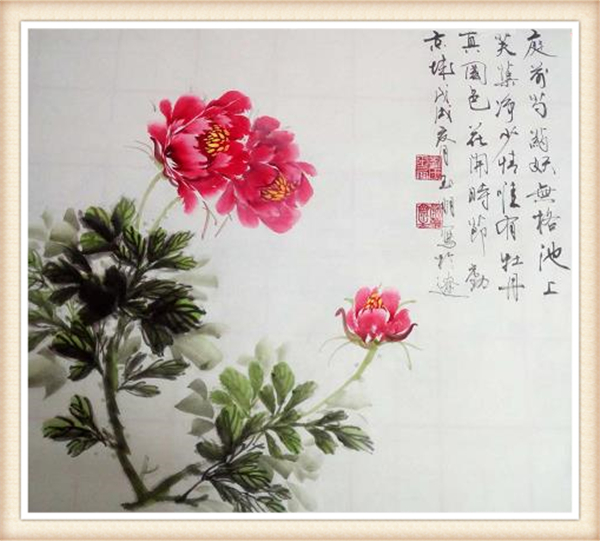 庭前芍药妖無格池上
芙蕖净少情惟有牡丹
真國色花開時節動
京城戊戌夏月寫於遼